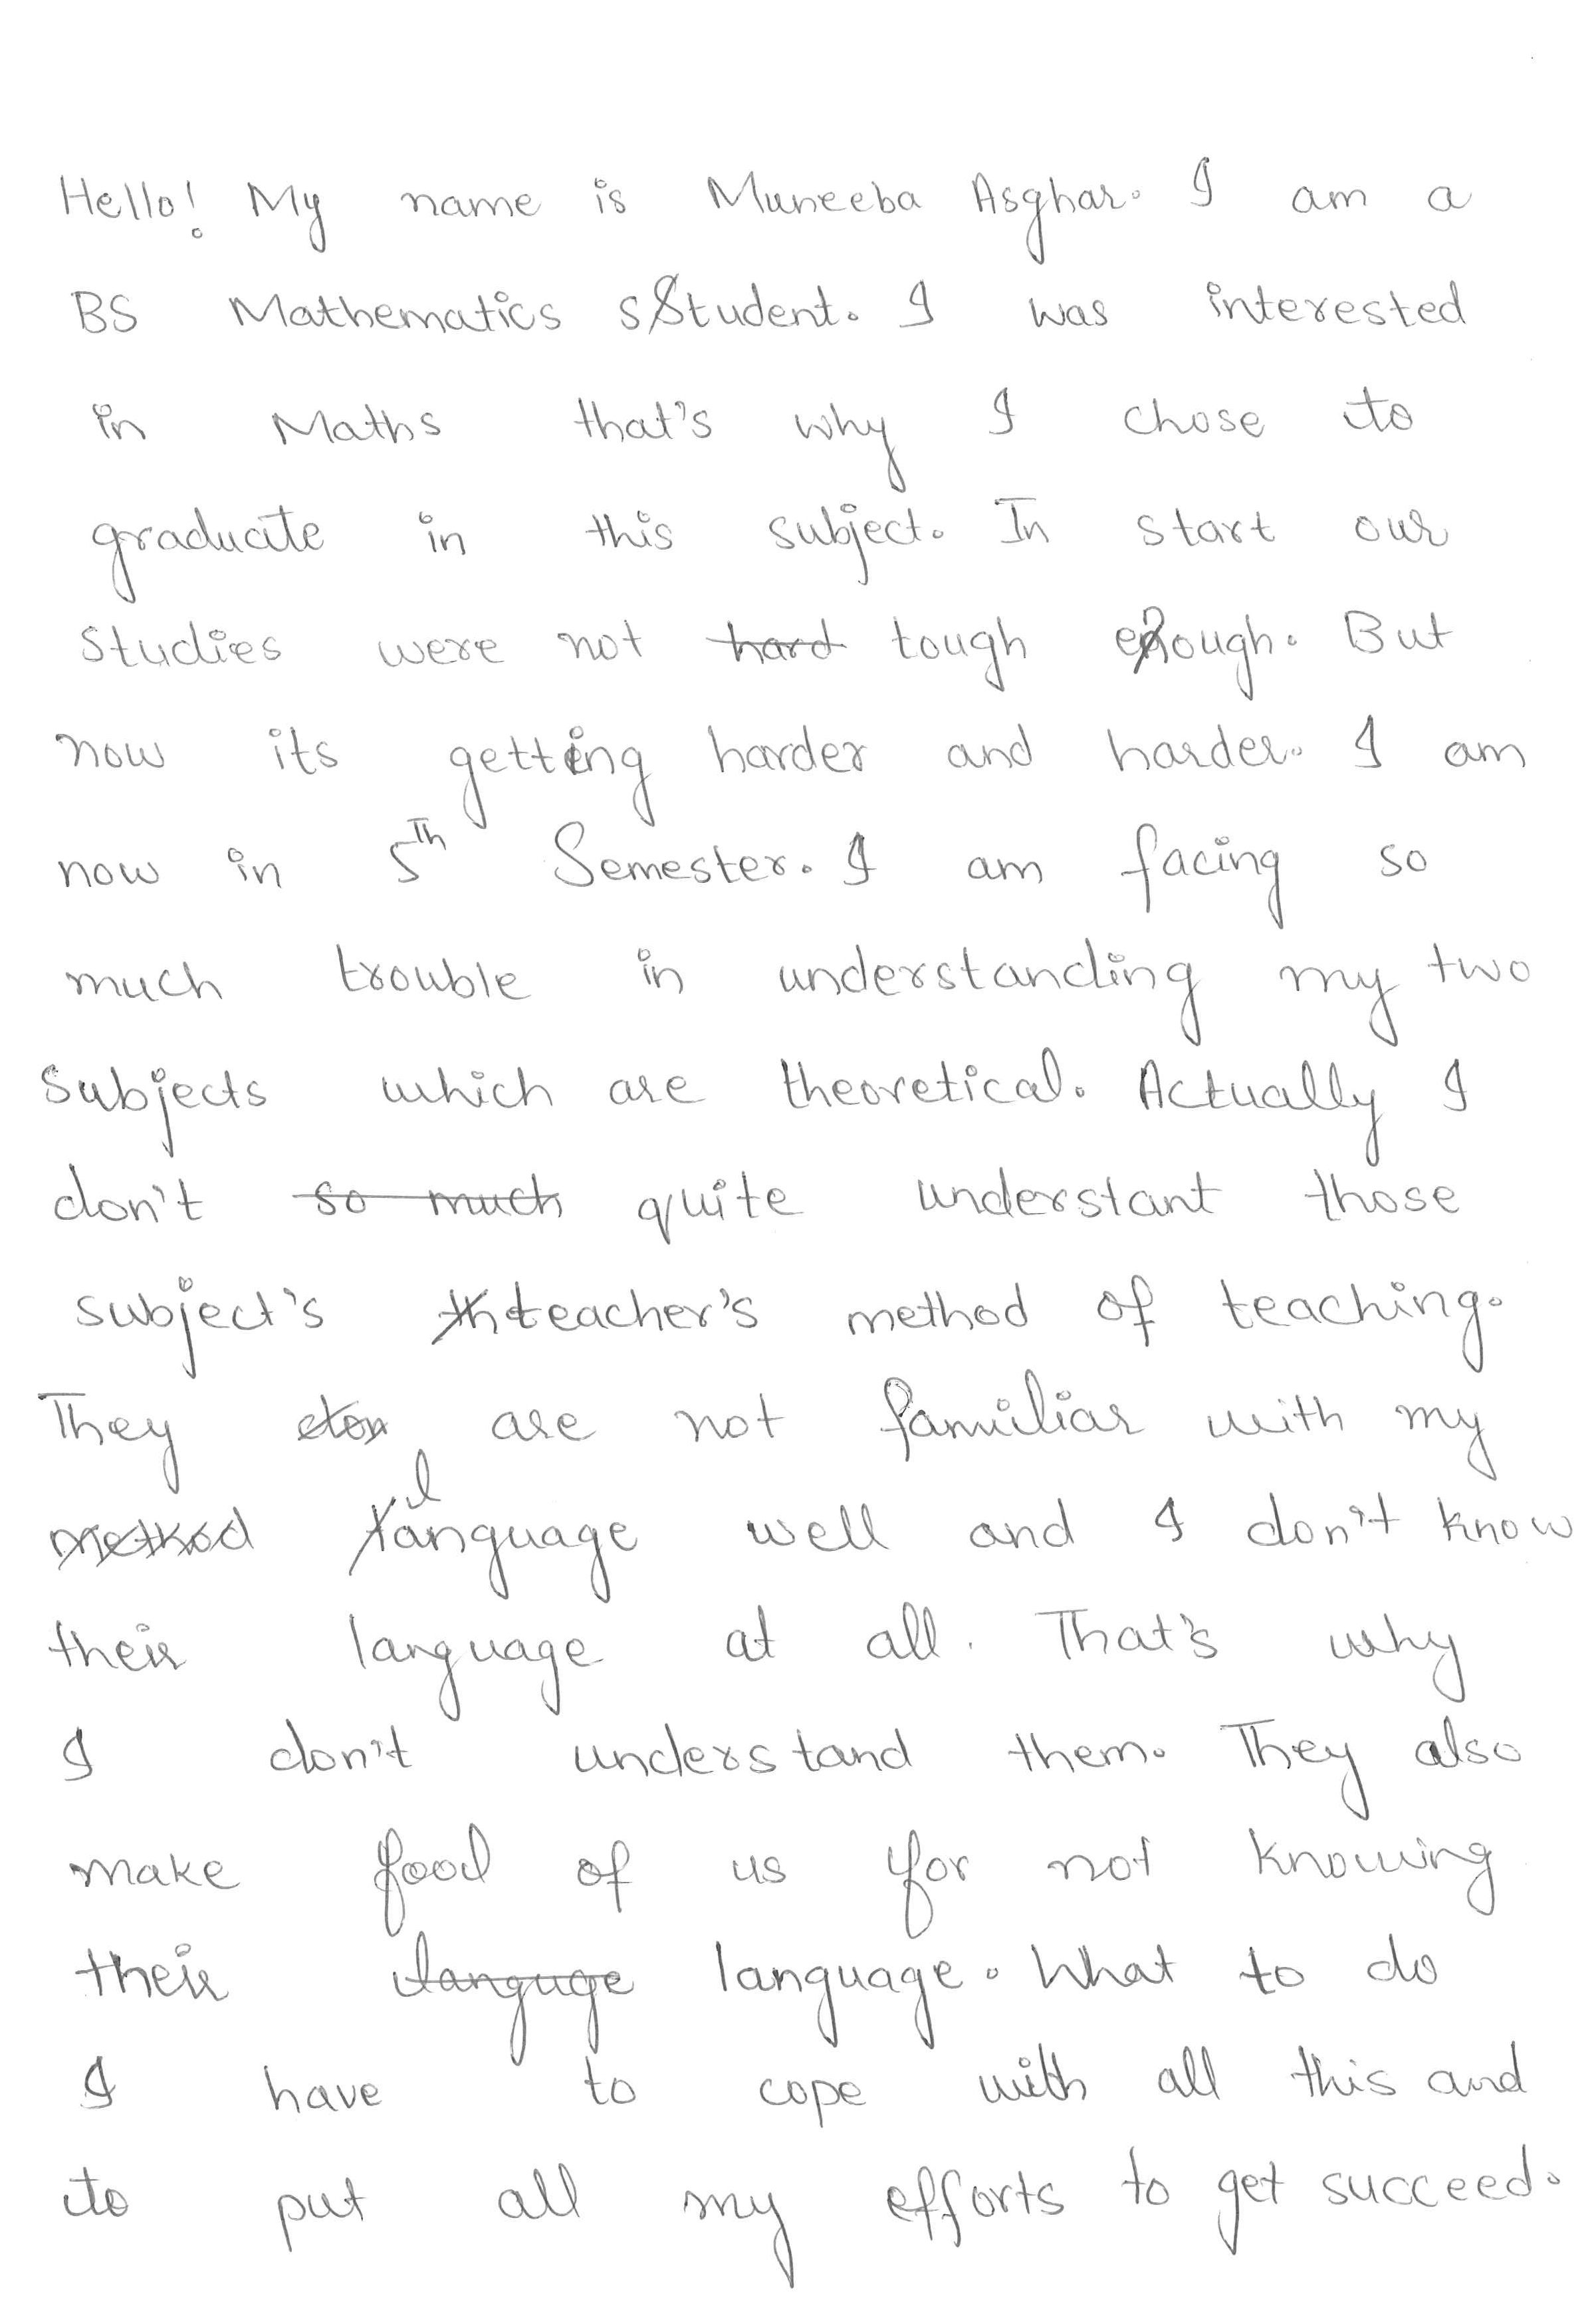 Hello! My name is Muneeba Asghar. I am a
BS Mathematics student. I was interested
in Maths that's why I chose to
graduate in this subject. In start our
studies were not hard tough enough. But
now its getting harder and harder. I am
now in 5th Semester. I am facing so
much trouble in understanding my two
subjects which are theoretical. Actually I
don't so much quite understant those
subject's teacher's method of teaching.
They are not familiar with my
method language well and I don't know
their language at all. That's why
I don't understand them. They also
make food of us for not knowing
their languge language. What to do
I have to cope with all this and
to put all my efforts to get succeed.